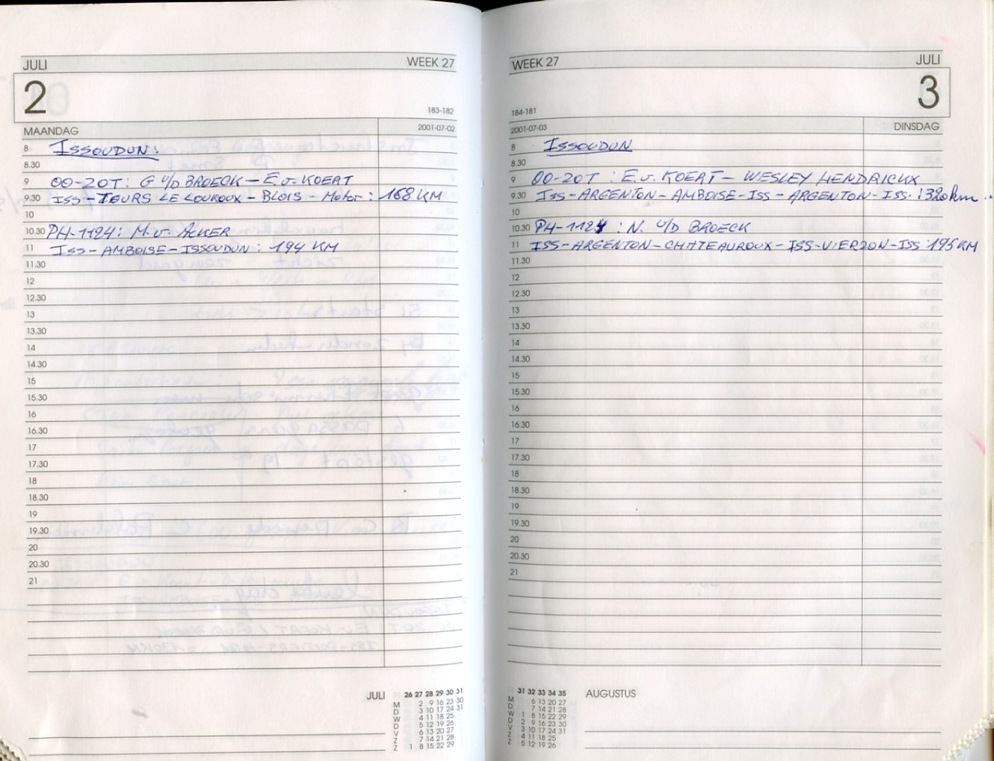 JULI WEEK 27
2
183-182
MAANDAG 2001-07-02
8 ISSOUDUN:
8.30
9 OO-ZOT: G V/D BROECK - E.V. KOERT
9.30 ISS - TOURS LE LOUROUX - BLOIS - Motor: 168 KM
10
10.30 PH-1124: M.V. ACKER
11 ISS - AMBOISE - ISSOUDUN: 194 KM
11.30
12
12.30
13
13.30
14
14.30
15
15.30
16
16.30
17
17.30
18
18.30
19
19.30
20
20.30
21
JULI 26 27 28 29 30 31
M 2 9 16 23 30
D 3 10 17 24 31
W 4 11 18 25
D 5 12 19 26
V 6 13 20 27
Z 7 14 21 28
Z 1 8 15 22 29
WEEK 27 JULI
3
184-181
2001-07-03 DINSDAG
8 ISSOUDUN
8.30
9 OO-ZOT: E.V. KOERT - WESLEY HENDRICKX
9.30 ISS - ARGENTON - AMBOISE - ISS - ARGENTON - ISS: 320 km
10
10.30 PH-1124: N. V/D BROECK
11 ISS - ARGENTON - CHATEAUROUX - ISS - VIERZON - ISS 195 KM
11.30
12
12.30
13
13.30
14
14.30
15
15.30
16
16.30
17
17.30
18
18.30
19
19.30
20
20.30
21
31 32 33 34 35 AUGUSTUS
M 6 13 20 27
D 7 14 21 28
W 1 8 15 22 29
D 2 9 16 23 30
V 3 10 17 24 31
Z 4 11 18 25
Z 5 12 19 26